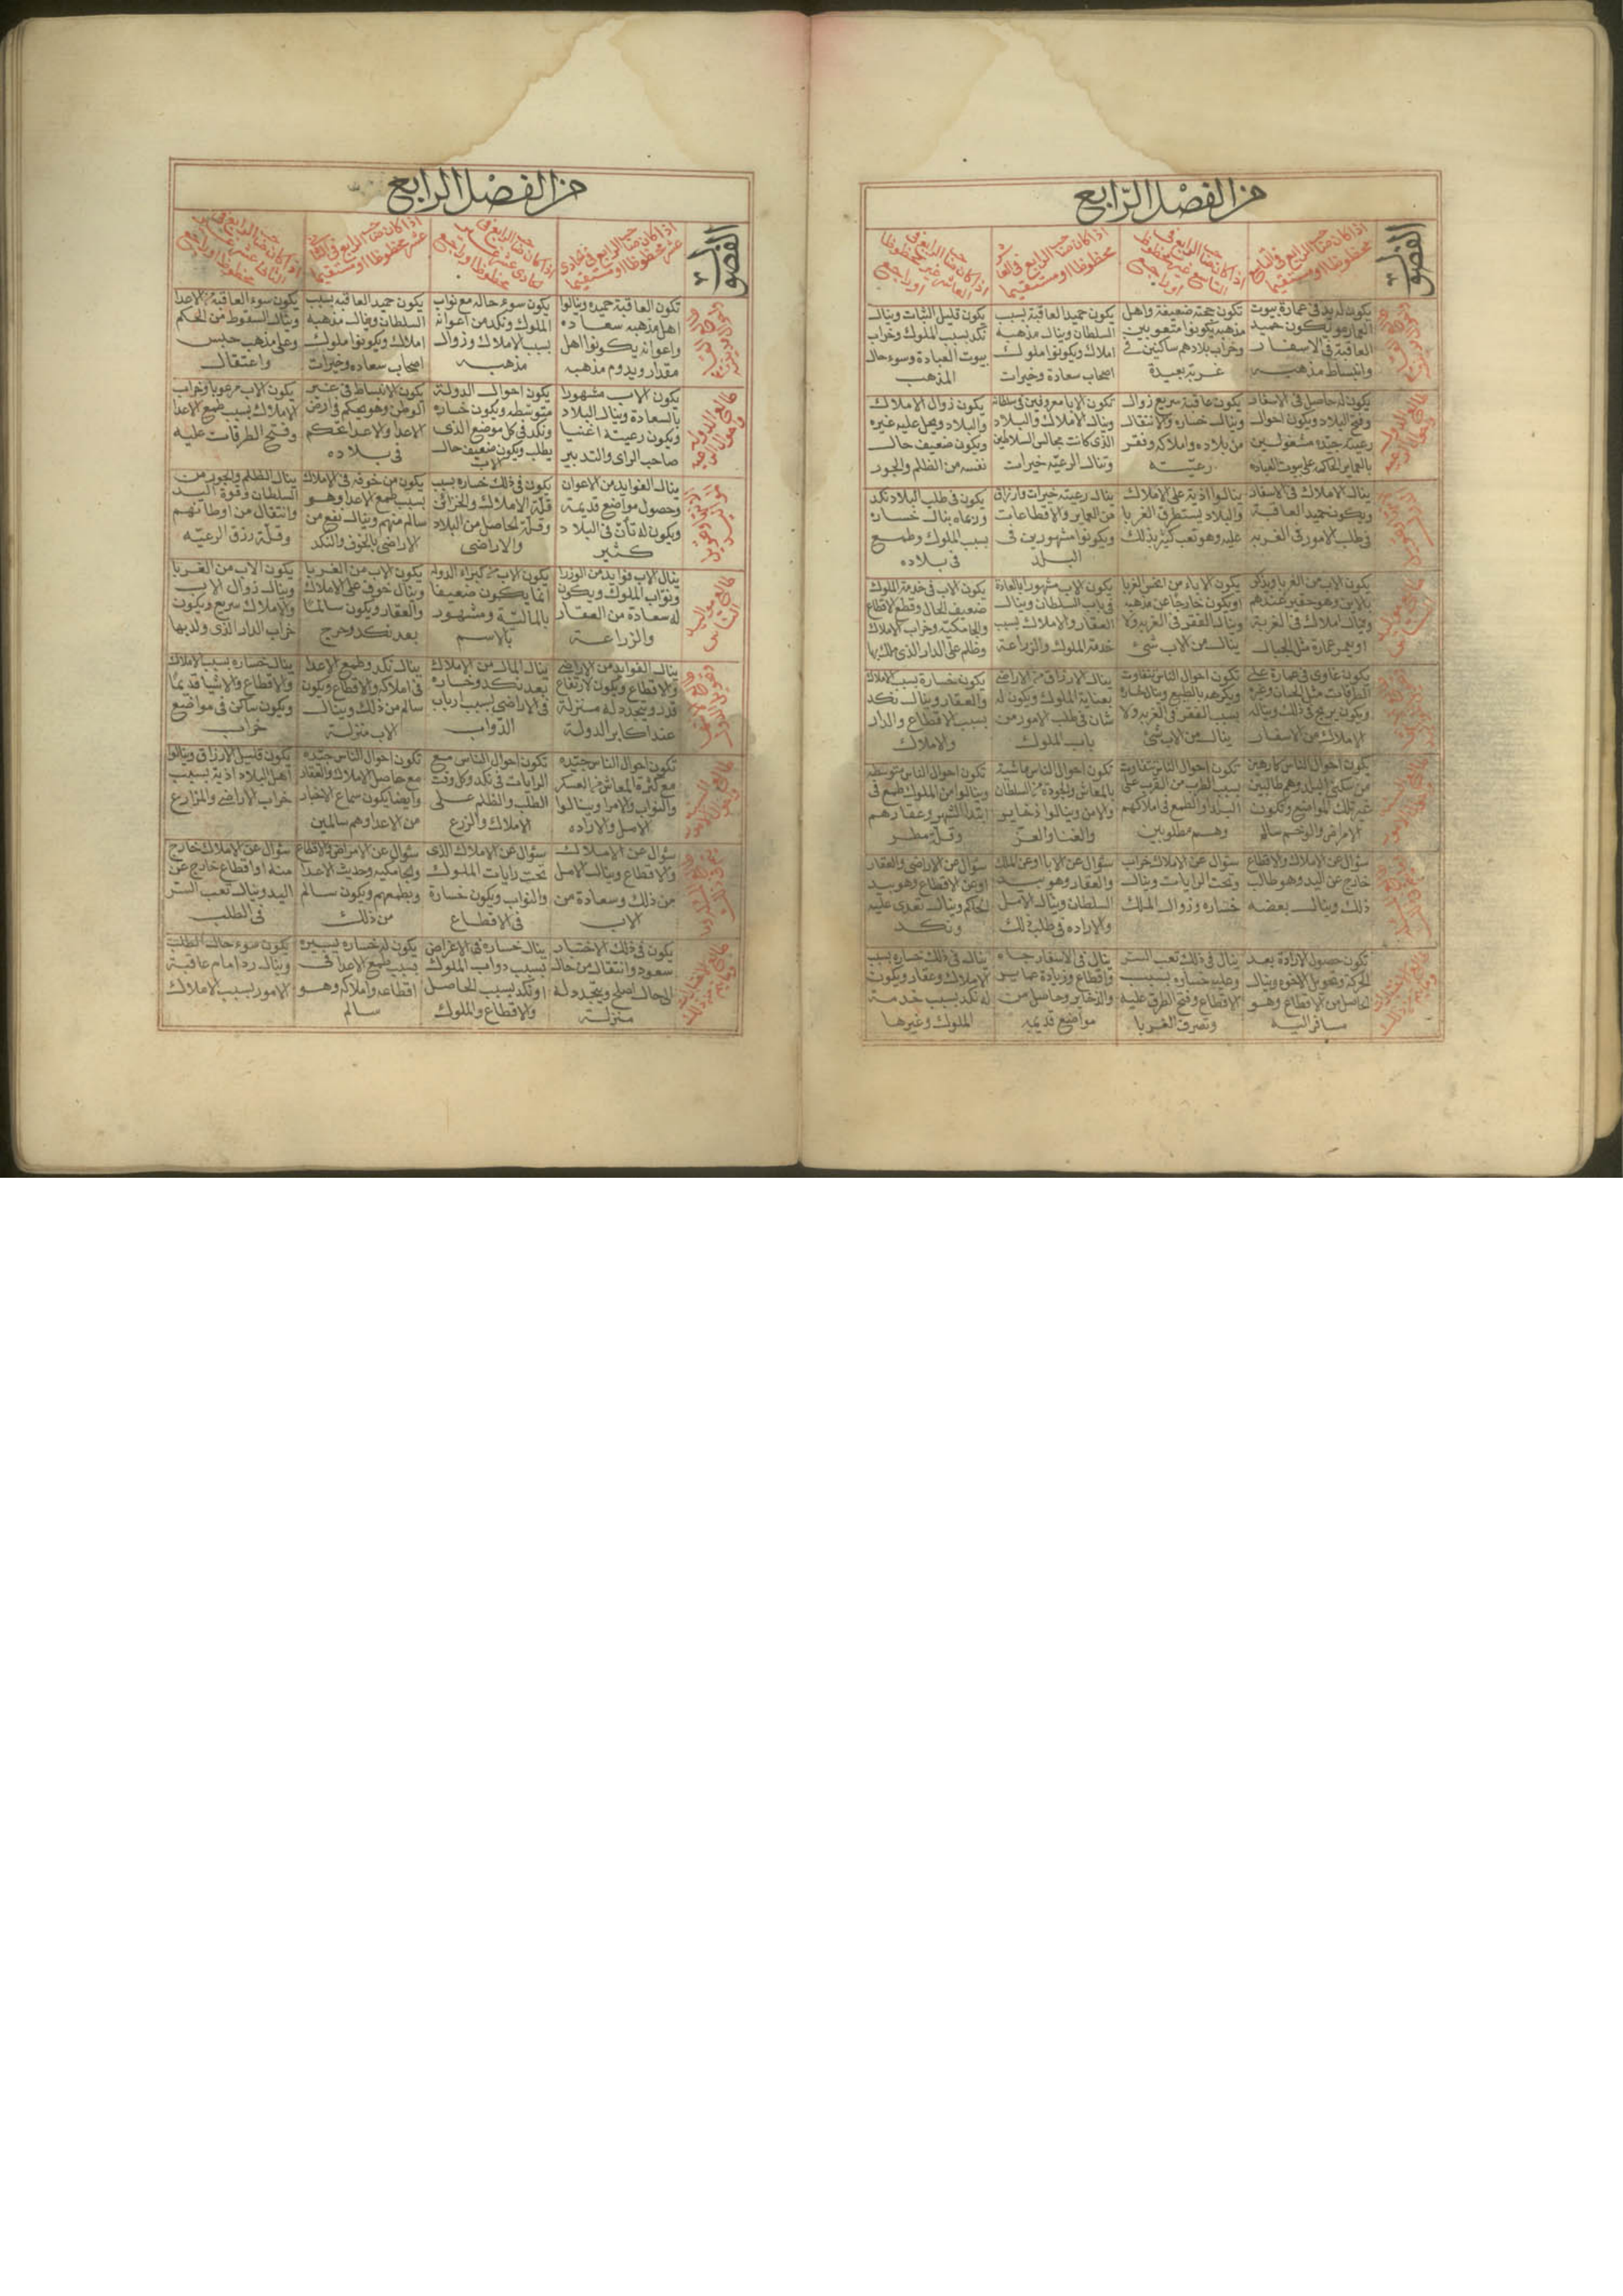 من الفصل الرابع
الفصول
اذا كان صاحب الرابع في التاسع
محظوظا او مستقيما
اذا كان صاحب الرابع في
التاسع غير محظوظا
او راجع
اذا كان صاحب الرابع في العاشر
محظوظا او مستقيما
اذا كان صاحب الرابع في
العاشر غير محظوظا
او راجع
يكون له يد في عمارة بيوت
ويكون حميد
العاقبة في الاسفار
وانبساط مذهبه
تكون حجته ضعيفة واهل
مذهبه يكونوا متعوبين
وخراب بلادهم ساكنين في
غربة بعيدة
يكون حميد العاقبة بسبب
السلطان وينال مذهبه
املاك ويكونوا ملوك
اصحاب سعادة وخيرات
يكون قليل الثبات وينال
نكد بسبب الملوك وخراب
بيوت العبادة وسوء حال
المذهب
يكون له حاصل في الاسفار
وفتح البلاد ويكون احوال
رعيته جيدة مشغولين
يكون عاقبته سريع زوال
وينال خساره والانتقال
من بلاده واملاكه وفقر
رعيته
تكون الابا معروفين في سلطانه
وينال الاملاك والبلاد
الذي كانت مجالس السلاطين
وتنال الرعية خيرات
يكون زوال الاملاك
والبلاد ويحل عليه غيره
ويكون ضعيف حال
نفسه من الظلم والجور
ينال الاملاك في الاسفار
ويكون حميد العاقبة
في طلب الامور في الغربه
ينالوا اذية على الاملاك
والبلاد يستطرق الغربا
عليه وهو تعب كثير بذلك
ينال رعيته خيرات وارزاق
من العماير والاقطاعات
ويكونوا مشهورين في
البلد
يكون في طلب البلاد نكد
وزمانه ينال خساره
بسبب الملوك وطمع
في بلاده
يكون الاب من الغربا ويذكر
بالدين وهو حقير عندهم
وينال املاك في الغربة
او يعمر عمارة مثل الجبال
يكون الاباء من اخس الغربا
او يكون خارجا عن مذهبه
وينال الفقر في الغربه ولا
ينال من الاب شئ
يكون الاب مشهورا بالعادة
في باب السلطان وينال
العقار والاملاك بسبب
خدمة الملوك والزراعة
يكون الاب في خدمة الملوك
ضعيف الحال وقطع الاقطاع
والجامكية وخراب الاملاك
وظلم على الدار الذي ملك بها
يكون غاوي في عمارة على
الطرقات مثل الخان وغيره
ويكون يربح في ذلك ويناله
الاملاك من الاسفار
بسبب الفقر في الغربه ولا
ينال من الاب شئ
ينال الارزاق من الاراضي
بعناية الملوك ويكون له
شان في طلب الامور من
باب الملوك
تكون خسارة بسبب الاملاك
والعقار وينال نكد
بسبب الاقطاع والدار
والاملاك
يكون احوال الناس كارهين
من سكنى البلد وهم طالبين
غير تلك المواضع وتكون
الامراض والوخم سالم
تكون احوال الناس متفاوت
وهم مطلوبين
تكون احوال الناس ماشية
بالمعاش والجودة من السلطان
والامن وينالوا ذخاير
والغنا والعز
تكون احوال الناس متوسطه
وينالوا من الملوك طمع في
ابتدا الشهر وعقارهم
وقلة مطر
سؤال عن الاملاك والاقطاع
خارج عن اليد وهو طالب
ذلك وينال بعضه
سؤال عن الاملاك خراب
وتحت الرايات وينال
خساره وزوال الملك
سؤال عن الابا او عن الملك
والعقار وهو بيد
السلطان وينال الامل
والاراده في طلب ذلك
سؤال عن الاراضي والعقار
او عن الاقطاع وهو بيد
الحاكم وينال تعدي عليه
ونكد
تكون حصول الارادة بعد
الحركة وتحويل الاخوه وينال
الحاصل من الاقطاع وهو
مسافر اليه
ينال في ذلك تعب السر
وعليه خساره بسبب
الاقطاع وفتح الطرق عليه
وتصرف الغربا
ينال في الاسفار جاه
واقطاع وزيادة عماير
والذخاير وحاصل من
مواضع قديمه
ينال في ذلك خساره بسبب
الاملاك وعقار ويكون
له نكد بسبب خدمة
الملوك وغيرها
من الفصل الرابع
الفصول
اذا كان صاحب الرابع في الحادي
عشر محظوظا او مستقيما
اذا كان صاحب الرابع في
الحادي عشر غير
محظوظا او راجع
اذا كان صاحب الرابع في الثاني
عشر محظوظا او مستقيما
اذا كان صاحب الرابع في
الثاني عشر غير
محظوظا او راجع
تكون العاقبة حميده وينالوا
اهل مذهبه سعاده
واعوانه يكونوا اهل
مقدار ويدوم مذهبه
يكون سوء حاله مع نواب
الملوك ونكد من اعوانه
بسبب الاملاك وزوال
مذهبه
يكون حميد العاقبه بسبب
السلطان وينال مذهبه
املاك ويكونوا ملوك
اصحاب سعاده وخيرات
يكون سوء العاقبه من الاعدا
وينال السقوط من الحكم
وعلى مذهب حبس
واعتقال
يكون الاب مشهورا
بالسعادة وينال البلاد
ويكون رعيته اغنيا
صاحب الراى والتدبير
يكون احوال الدولة
متوسطه ويكون خساره
ونكد في كل موضع الذي
يطلب ويكون ضعيف حال
الاب
يكون الانبساط في غير
الوطن وهو يحكم في ارض
الاعدا والاعدا تحكم
في بلاده
يكون الاب مرعوبا وخراب
الاملاك بسبب طمع الاعدا
وفتح الطرقات عليه
ينال الفوايد من الاعوان
وحصول مواضع قديمة
ويكون له شأن في البلاد
كثير
يكون في ذلك خساره بسبب
قلة الاملاك والخزائن
وقلة الحاصل من البلاد
والاراضي
يكون من خوفه في الاملاك
بسبب طمع الاعدا وهو
سالم منهم وينال نفع من
الاراضي بالخوف والنكد
ينال الظلم والجور من
السلطان وقوة اليد
وانتقال من اوطانهم
وقلة رزق الرعيه
ينال الاب فوايد من الوزرا
ونواب الملوك ويكون
له سعادة من العقار
والزراعة
يكون الاب من كبراء الدوله
انما يكون ضعيفا
بالمالية ومشهور
بالاسم
يكون الاب من الغربا
وينال خوف على الاملاك
والعقار ويكون سالما
بعد نكد وحرج
يكون الاب من الغربا
وينال زوال الاب
والاملاك سريع ويكون
خراب الدار الذي ولد بها
ينال الفوايد من الاراضي
والاقطاع ويكون لارتفاع
قدر ويتجدد له منزلة
عند اكابر الدولة
ينال المال من الاملاك
بعد نكد وخساره
في الاراضي بسبب ارباب
الدواب
ينال نكد وطمع الاعدا
في املاكه والاقطاع ويكون
سالم من ذلك وينال
الاب منزلة
ينال خساره بسبب الاملاك
والاقطاع والاشيا قديما
ويكون ساكن في مواضع
خراب
تكون احوال الناس جيده
مع كثرة المعاش من العسكر
والنواب والامرا وينالوا
الامل والاراده
تكون احوال الناس مع
الرايات في نكد وكل وقت
الطلب والظلم على
الاملاك والزرع
تكون احوال الناس جيده
مع حاصل الاملاك والعقار
وايضا يكون سماع الاخبار
من الاعدا وهم سالمين
يكون قليل الارزاق وينالوا
اهل البلاد اذية بسبب
خراب الاراضي والمزارع
سؤال عن الاملاك
والاقطاع وينال الامل
من ذلك وسعادة من
الاب
سؤال عن الاملاك الذي
تحت رايات الملوك
والنواب ويكون خسارة
في الاقطاع
سؤال عن الامراض والاقطاع
والجامكيه وحديث الاعدا
وبطمعهم ويكون سالم
من ذلك
سؤال عن الاملاك خارج
عنه او اقطاع خارج عن
اليد وينال تعب السر
في الطلب
يكون في ذلك الاختيار
سعود وانتقال من حال
الى حال اصلح ويتجدد له
منزلة
ينال خساره في الاغراض
بسبب دواب الملوك
او نكد بسبب الحاصل
والاقطاع والملوك
يكون له خساره يسيره
بسبب طمع الاعدا في
اقطاعه واملاكه وهو
سالم
يكون سوء حال الطلب
وينال ردا مام عاقبة
الامور بسبب الاملاك